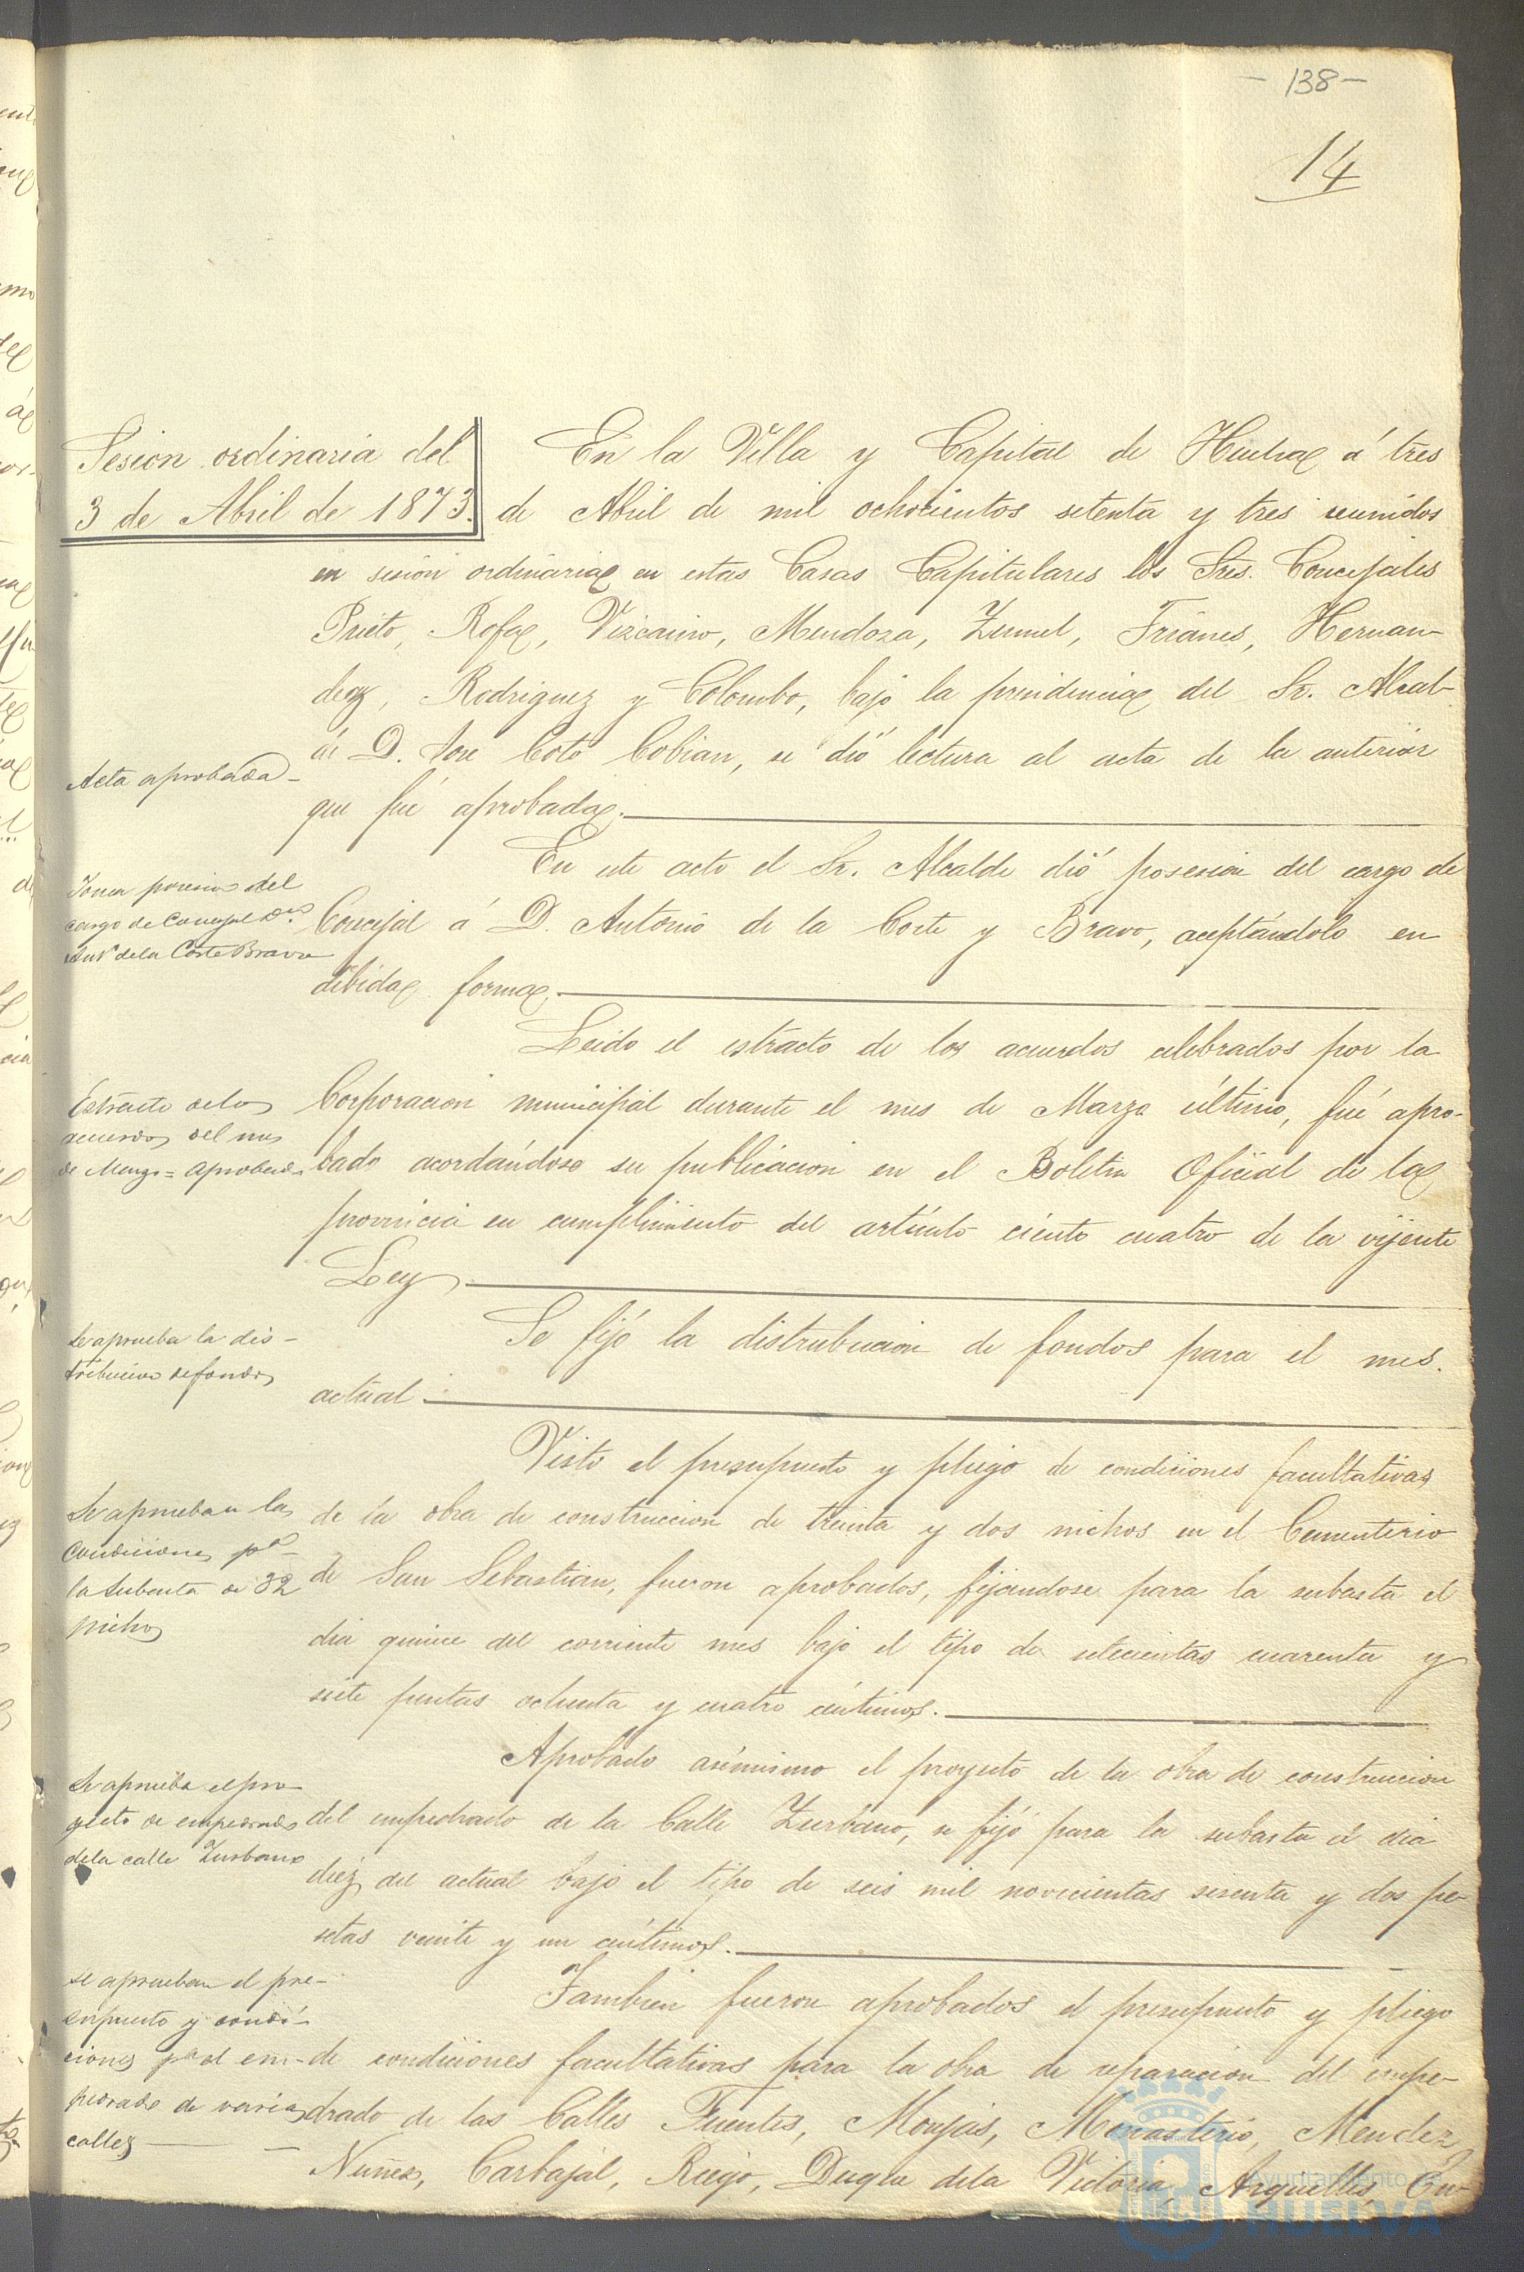 - 138 -
14
Sesion ordinaria del
3 de Abril de 1873.
En la Villa y Capital de Huelva á tres
de Abril de mil ochocientos setenta y tres reunidos
en sesion ordinaria en estas Casas Capitulares los Sres. Concejales
Prieto, Rofa, Vizcaino, Mendoza, Zumel, Frianes, Hernan-
dez, Rodriguez y Colombo, bajo la presidencia del Sr. Alcal-
de D. Jose Coto Cobian, se dió lectura al acta de la anterior
Acta aprobada -
que fué aprobada.
En este acto el Sr. Alcalde dió posesion del cargo de
Toma posesion del
cargo de Concejal Dn
Antº de la Corte Bravo
Concejal á D. Antonio de la Corte y Bravo, aceptándolo en
debida forma.
Leido el estracto de los acuerdos celebrados por la
Estracto de los
acuerdos del mes
de Marzo = aprobado
Corporacion municipal durante el mes de Marzo último, fué apro-
bado acordándose su publicacion en el Boletin Oficial de la
provincia en cumplimiento del artículo ciento cuatro de la vijente
Ley
Se aprueba la dis-
tribucion de fondos
Se fijó la distribucion de fondos para el mes
actual.
Visto el presupuesto y pliego de condiciones facultativas
Se aprueban las
condiciones pª
la subasta de 32
nichos
de la obra de construccion de treinta y dos nichos en el Cementerio
de San Sebastian, fueron aprobados, fijandose para la subasta el
dia quince del corriente mes bajo el tipo de setecientas cuarenta y
siete pesetas ochenta y cuatro céntimos.
Aprobado asimismo el proyecto de la obra de construccion
Se aprueba el pro-
yecto de empedrado
de la calle Zurbano
del empedrado de la Calle Zurbano, se fijó para la subasta el dia
diez del actual bajo el tipo de seis mil novecientas sesenta y dos pe-
setas veinte y un céntimos.
se aprueban el pre-
supuesto y condi-
ciones pª el em-
pedrado de varias
calles
Tambien fueron aprobados el presupuesto y pliego
de condiciones facultativas para la obra de reparacion del empe-
drado de las Calles Fuentes, Monjas, Monasterio, Mendez
Nuñez, Carbajal, Riego, Duque de la Victoria, Arguelles, En-
Ayuntamiento de
HUELVA